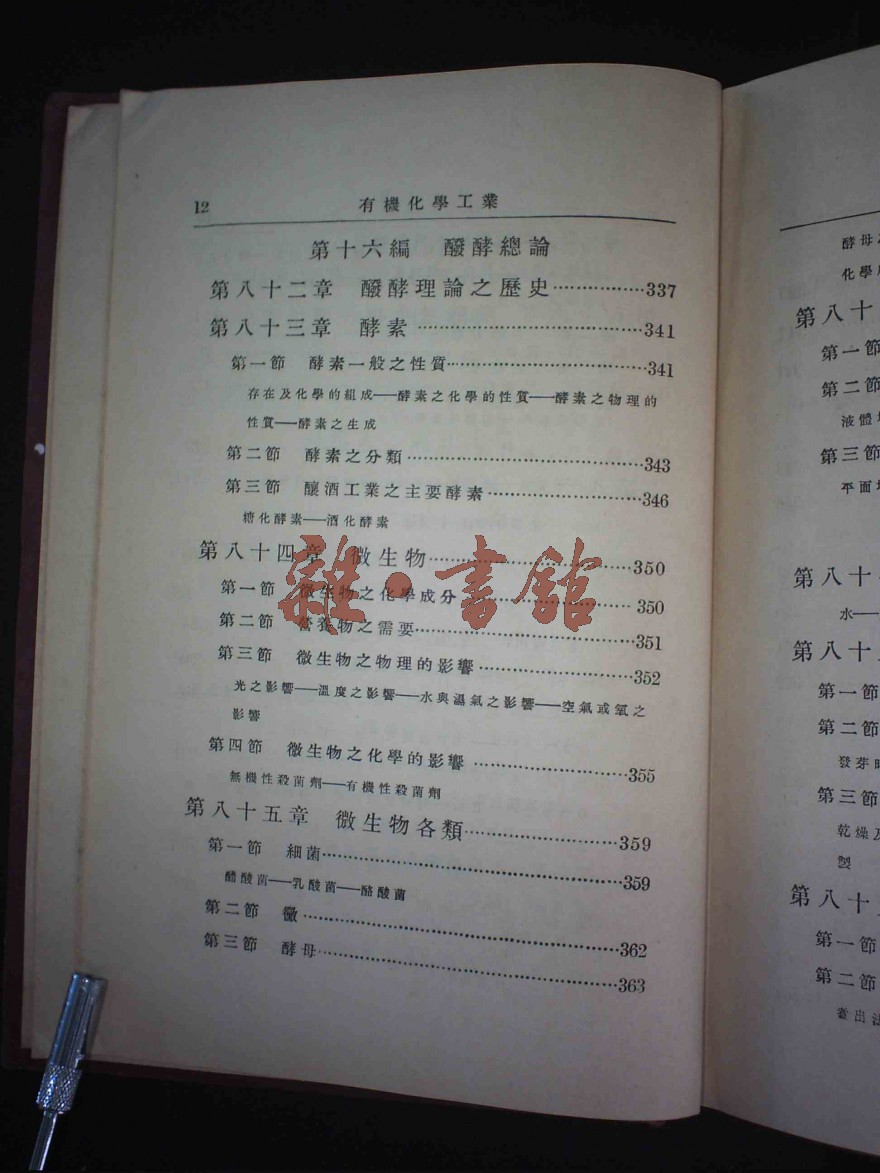 12 有機化學工業
第十六編 醱酵總論
第八十二章 醱酵理論之歷史……………337
第八十三章 酵素……………341
第一節 酵素一般之性質……………341
存在及化學的組成——酵素之化學的性質——酵素之物理的
性質——酵素之生成
第二節 酵素之分類……………343
第三節 釀酒工業之主要酵素……………346
糖化酵素——酒化酵素
第八十四章 微生物……………350
第一節 微生物之化學成分……………350
第二節 營養物之需要……………351
第三節 微生物之物理的影響……………352
光之影響——溫度之影響——水與濕氣之影響——空氣或氧之
影響
第四節 微生物之化學的影響……………355
無機性殺菌劑——有機性殺菌劑
第八十五章 微生物各類……………359
第一節 細菌……………359
醋酸菌——乳酸菌——酪酸菌
第二節 黴……………362
第三節 酵母……………363
雜·書館
酵母
化學
第八十
第一節
第二節
液體
第三節
平面
第八十
水——
第八十
第一節
第二節
發芽
第三節
乾燥及
製
第八十
第一節
第二節
出法